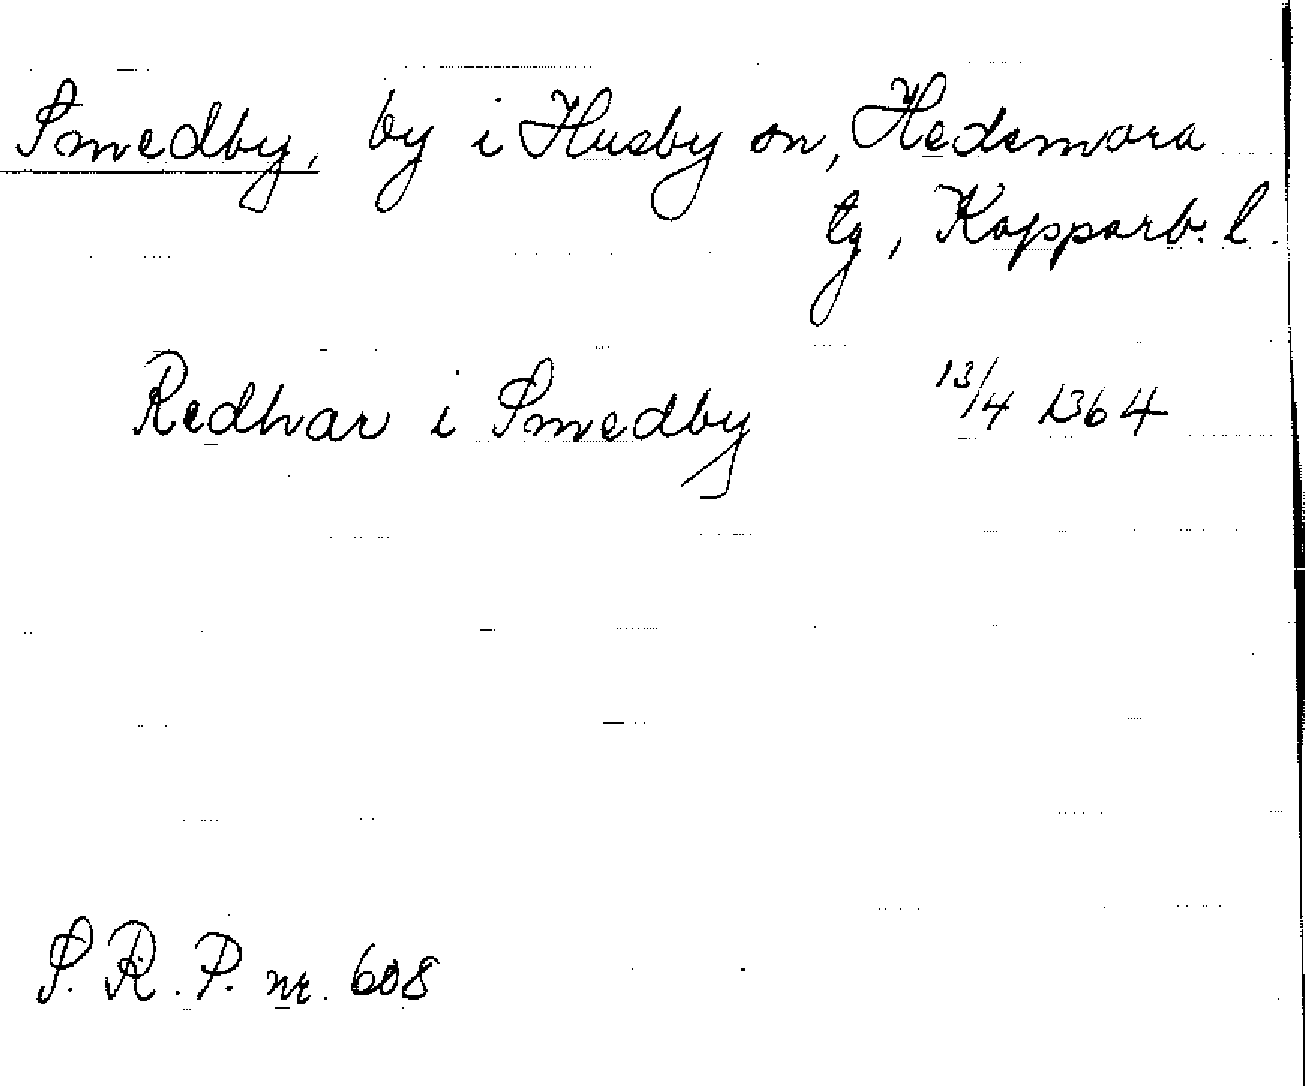 Smedby, by i Husby sn, Hedemora
tg, Kopparb. l.
Redhar i Smedby 13/4 1364
S. R. P. nr. 608